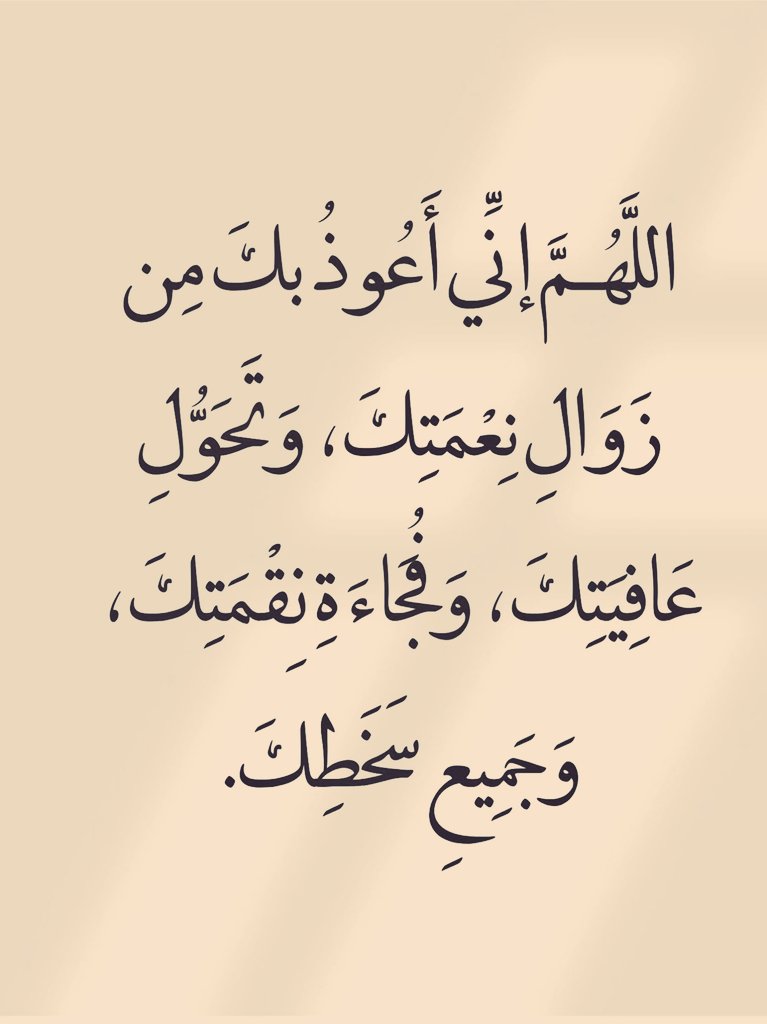 اللَّهُمَّ إنِّي أَعُوذُ بكَ مِن
زَوَالِ نِعْمَتِكَ، وَتَحَوُّلِ
عَافِيَتِكَ، وَفُجَاءَةِ نِقْمَتِكَ،
وَجَمِيعِ سَخَطِكَ.